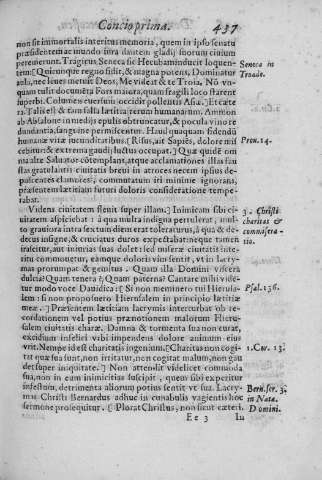 Concio prima. 437
non sit immortalis interitus memoria, quem in ipso senatu
præsidentem ac mundo iura dantem gladij suorum ciuium
peremerunt. Tragicus Seneca sic Hecubam inducit loquen-
tem: [Quicunque regno fidit, & magna potens, Dominatur
aula, nec leues metuit Deos, Me videat & te Troia. Nõ vn-
quam tulit documẽta Fors maiora, quam fragili loco starent
superbi. Columen euersum occidit pollentis Asiæ.] Et cæte
ra. Talis est & tam falsa lætitia rerum humanarum. Ammon
ab Absalone in medijs epulis obtruncatur, & pocula vino re
dundantia, sanguine permiscentur. Haud quaquam fidendũ
humanæ vitæ iucunditatibus. [Risus, ait Sapiẽs, dolore mis
cebitur: & extrema gaudij luctus occupat.] Quæ quidẽ om
nia alte Saluator cõtemplans, atque acclamationes illas fau
stas gratulantis ciuitatis breui in atroces necem ipsius de-
poscentis clamores, commutatum iri minime ignorans,
præsentem lætitiam futuri doloris consideratione tempe-
rabat.
Videns ciuitatem fleuit super illam.] Inimicam sibi ci-
uitatem aspiciebat: à qua multa nequiter perpessus erat, mul-
to grauiora intra sextum diem erat toleraturus, à qua & de-
decus insigne, & cruciatus duros expectabat: neque tamen
irascitur, aut iniurias suas dolet: sed miseræ ciuitatis inte-
ritu commouetur, eamque doloris vim sentit, vt in lacry-
mas prorumpat & gemitus. Quam illa Domini viscera
dulcia? Quam tenera? Quam paterna? Cantare mihi vide-
tur modo voce Dauidica: [Si non meminero tui Hierusa-
lem: si non proposuero Hierusalem in principio lætitiæ
meæ.] Præsentem lætitiam lacrymis interturbat ob re-
cordationem vel potius prænotionem malorum Hieru-
salem ciuitatis charæ. Damna & tormenta sua non curat,
excidium infelici vrbi impendens dolore animum eius
vrit. Nempe id est charitatis ingenium. [Charitas non cogi-
tat quæ sua sunt, non irritatur, non cogitat malum, non gau
det super iniquitate.] Non attendit videlicet commoda
sua, non in eum inimicitias suscipit, quem sibi experitur
infestum, detrimenta aliorum potius sentit vt sua. Lacry-
mas Christi Bernardus adhuc in cunabulis vagientis hoc
sermone prosequitur. [Plorat Christus, non sicut cæteri.
E e 3 In
Seneca in
Troade.
Prou. 14.
3. Christi
charitas &
commisera-
tio.
Psal. 136.
1. Cor. 13.
Bern. ser. 3.
in Nata.
Domini.